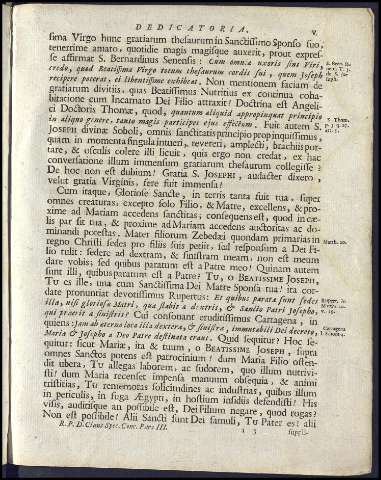 DEDICATORIA.
V.
sima Virgo hunc gratiarum thesaurum in Sanctissimo Sponso suo,
tenerrime amato, quotidie magis magisque auxerit, prout expres-
se affirmat S. Bernardinus Senensis: Cum omnia uxoris sint Viri,
credo, quod Beatissima Virgo totum thesaurum cordis sui, quem Joseph
recipere poterat, ei libentissime exhibeat. Non mentionem faciam de
gratiarum divitiis, quas Beatissimus Nutritius ex continua coha-
bitatione cum Incarnato Dei Filio attraxit? Doctrina est Angeli-
ci Doctoris Thomæ, quod, quantum aliquid appropinquat principio
in aliquo genere, tanto magis particeps ejus effectum. Fuit autem S.
JOSEPH divinæ Soboli, omnis sanctitatis principio propinquissimus,
quam in momenta singula intueri, revereri, amplecti, brachiis por-
tare, & osculis colere illi licuit, quis ergo non credat, ex hac
conversatione illum immensum gratiarum thesaurum collegisse?
De hoc non est dubium? Gratia S. JOSEPHI, audacter dixero,
velut gratia Virginis, fere fuit immensa?
Cum itaque, Gloriose Sancte, in terris tanta fuit tua, super
omnes creaturas, excepto solo Filio, & Matre, excellens, & pro-
xime ad Mariam accedens sanctitas; consequens est, quod in cœ-
lis par sit tua, & proxime ad Mariam accedens auctoritas ac do-
minandi potestas. Mater filiorum Zebedæi quondam primarias in
regno Christi sedes pro filiis suis petiit, sed responsum a Dei Fi-
lio tulit: sedere ad dextram, & sinistram meam, non est meum
dare vobis; sed quibus paratum est a Patre meo! Quinam autem
sunt illi, quibus paratum est a Patre? Tu, o BEATISSIME JOSEPH,
Tu es ille, una cum Sanctissima Dei Matre Sponsa tua! ita cor-
date pronuntiat devotissimus Rupertus: Et quibus parata sunt sedes
illa, nisi gloriosæ Matri, quæ stabit a dextris, & Sancto Patri Josepho,
qui præerit a sinistris? Cui consonat eruditissimus Cartagena, in
quiens: Jam ab æterno loca illa dextera, & sinistra, immutabili Dei decreto,
Maria & Josepho a Deo Patre destinata erant. Quid sequitur? Hoc se-
quitur: sicut Mariæ, ita & tuum, o BEATISSIME JOSEPH, supra
omnes Sanctos potens est patrocinium! dum Maria Filio osten-
dit ubera. Tu allegas laborem, ac sudorem, quo illum nutrivi-
sti! dum Maria recenset impensa manuum obsequia, & animi
tristitias, Tu rememoras solicitudines ac industrias, quibus illum
in periculis, in fuga Ægypti, in hostium insidiis defendisti? His
visis, auditisque an possibile est, Dei Filium negare, quod rogas?
Non est possibile! Alii Sancti sunt Dei famuli, TU Pater es: alii
R. P. D. Claus Spec. Conc. Pars III.
suppli-
S. Thom.
Matth. 20.
Cartagena